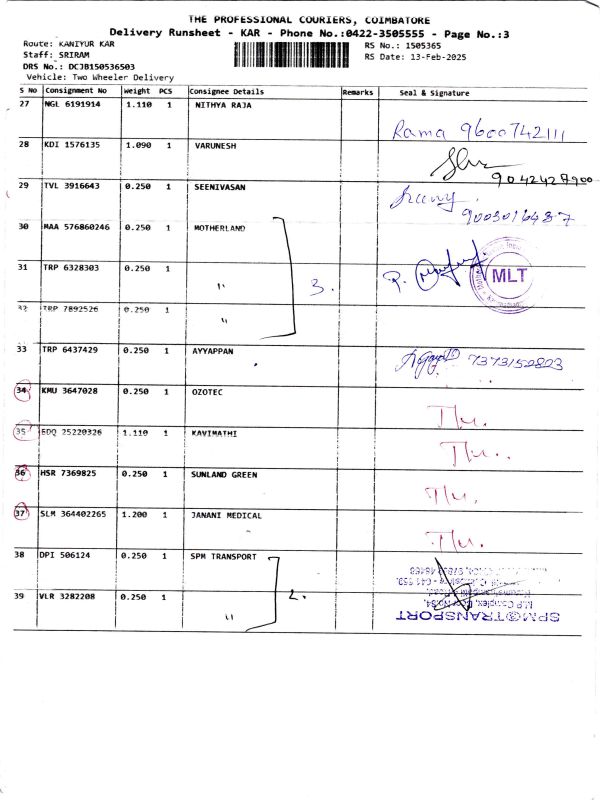 THE PROFESSIONAL COURIERS, COIMBATORE
Delivery Runsheet - KAR - Phone No.:0422-3505555 - Page No.:3
Route: KANIYUR KAR
RS No.: 1505365
Staff: SRIRAM
RS Date: 13-Feb-2025
DRS No.: DCJB150536503
Vehicle: Two Wheeler Delivery
S No Consignment No Weight PCS Consignee Details Remarks Seal & Signature
27 NGL 6191914 1.110 1 NITHYA RAJA
Rama 9600742111
28 KDI 1576135 1.090 1 VARUNESH
9042427900
29 TVL 3916643 0.250 1 SEENIVASAN
9003016487
30 MAA 576860246 0.250 1 MOTHERLAND
31 TRP 6328303 0.250 1 " 3.
MLT
32 TRP 7892526 0.250 1 "
33 TRP 6437429 0.250 1 AYYAPPAN
7373152823
34 KMU 3647028 0.250 1 OZOTEC
35 EDQ 25220326 1.110 1 KAVIMATHI
36 HSR 7369825 0.250 1 SUNLAND GREEN
37 SLM 364402265 1.200 1 JANANI MEDICAL
38 DPI 506124 0.250 1 SPM TRANSPORT
39 VLR 3282208 0.250 1 " 2.
SPM TRANSPORT